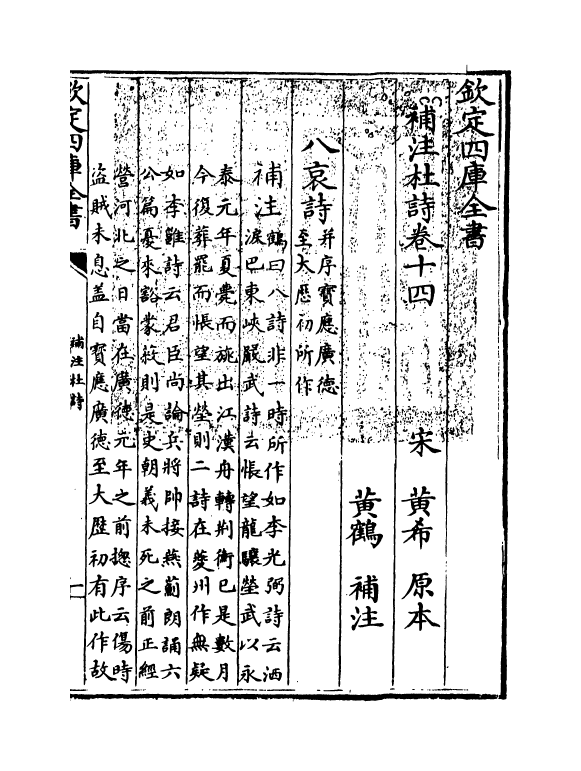 欽定四庫全書
補注杜詩卷十四 宋 黃希 原本
黃鶴 補注
八哀詩 并序寳應廣徳
至大厯初所作
補注 鶴曰八詩非一時所作如李光弼詩云洒
淚巴東峽嚴武詩去悵望龍驤塋武以永
泰元年夏薨而旐出江漢舟轉荆衡巳是數月
今復葬罷而悵望其塋則二詩在夔州作無疑
如李雝詩云君臣尚論兵將帥接燕薊朗誦六
公篇憂來豁蒙蔽則是史朝義未死之前正經
營河北之日當在廣徳元年之前揔序云傷時
盜賊未息盖自寳應廣徳至大歴初有此作故
欽定四庫全書
補注杜詩
一